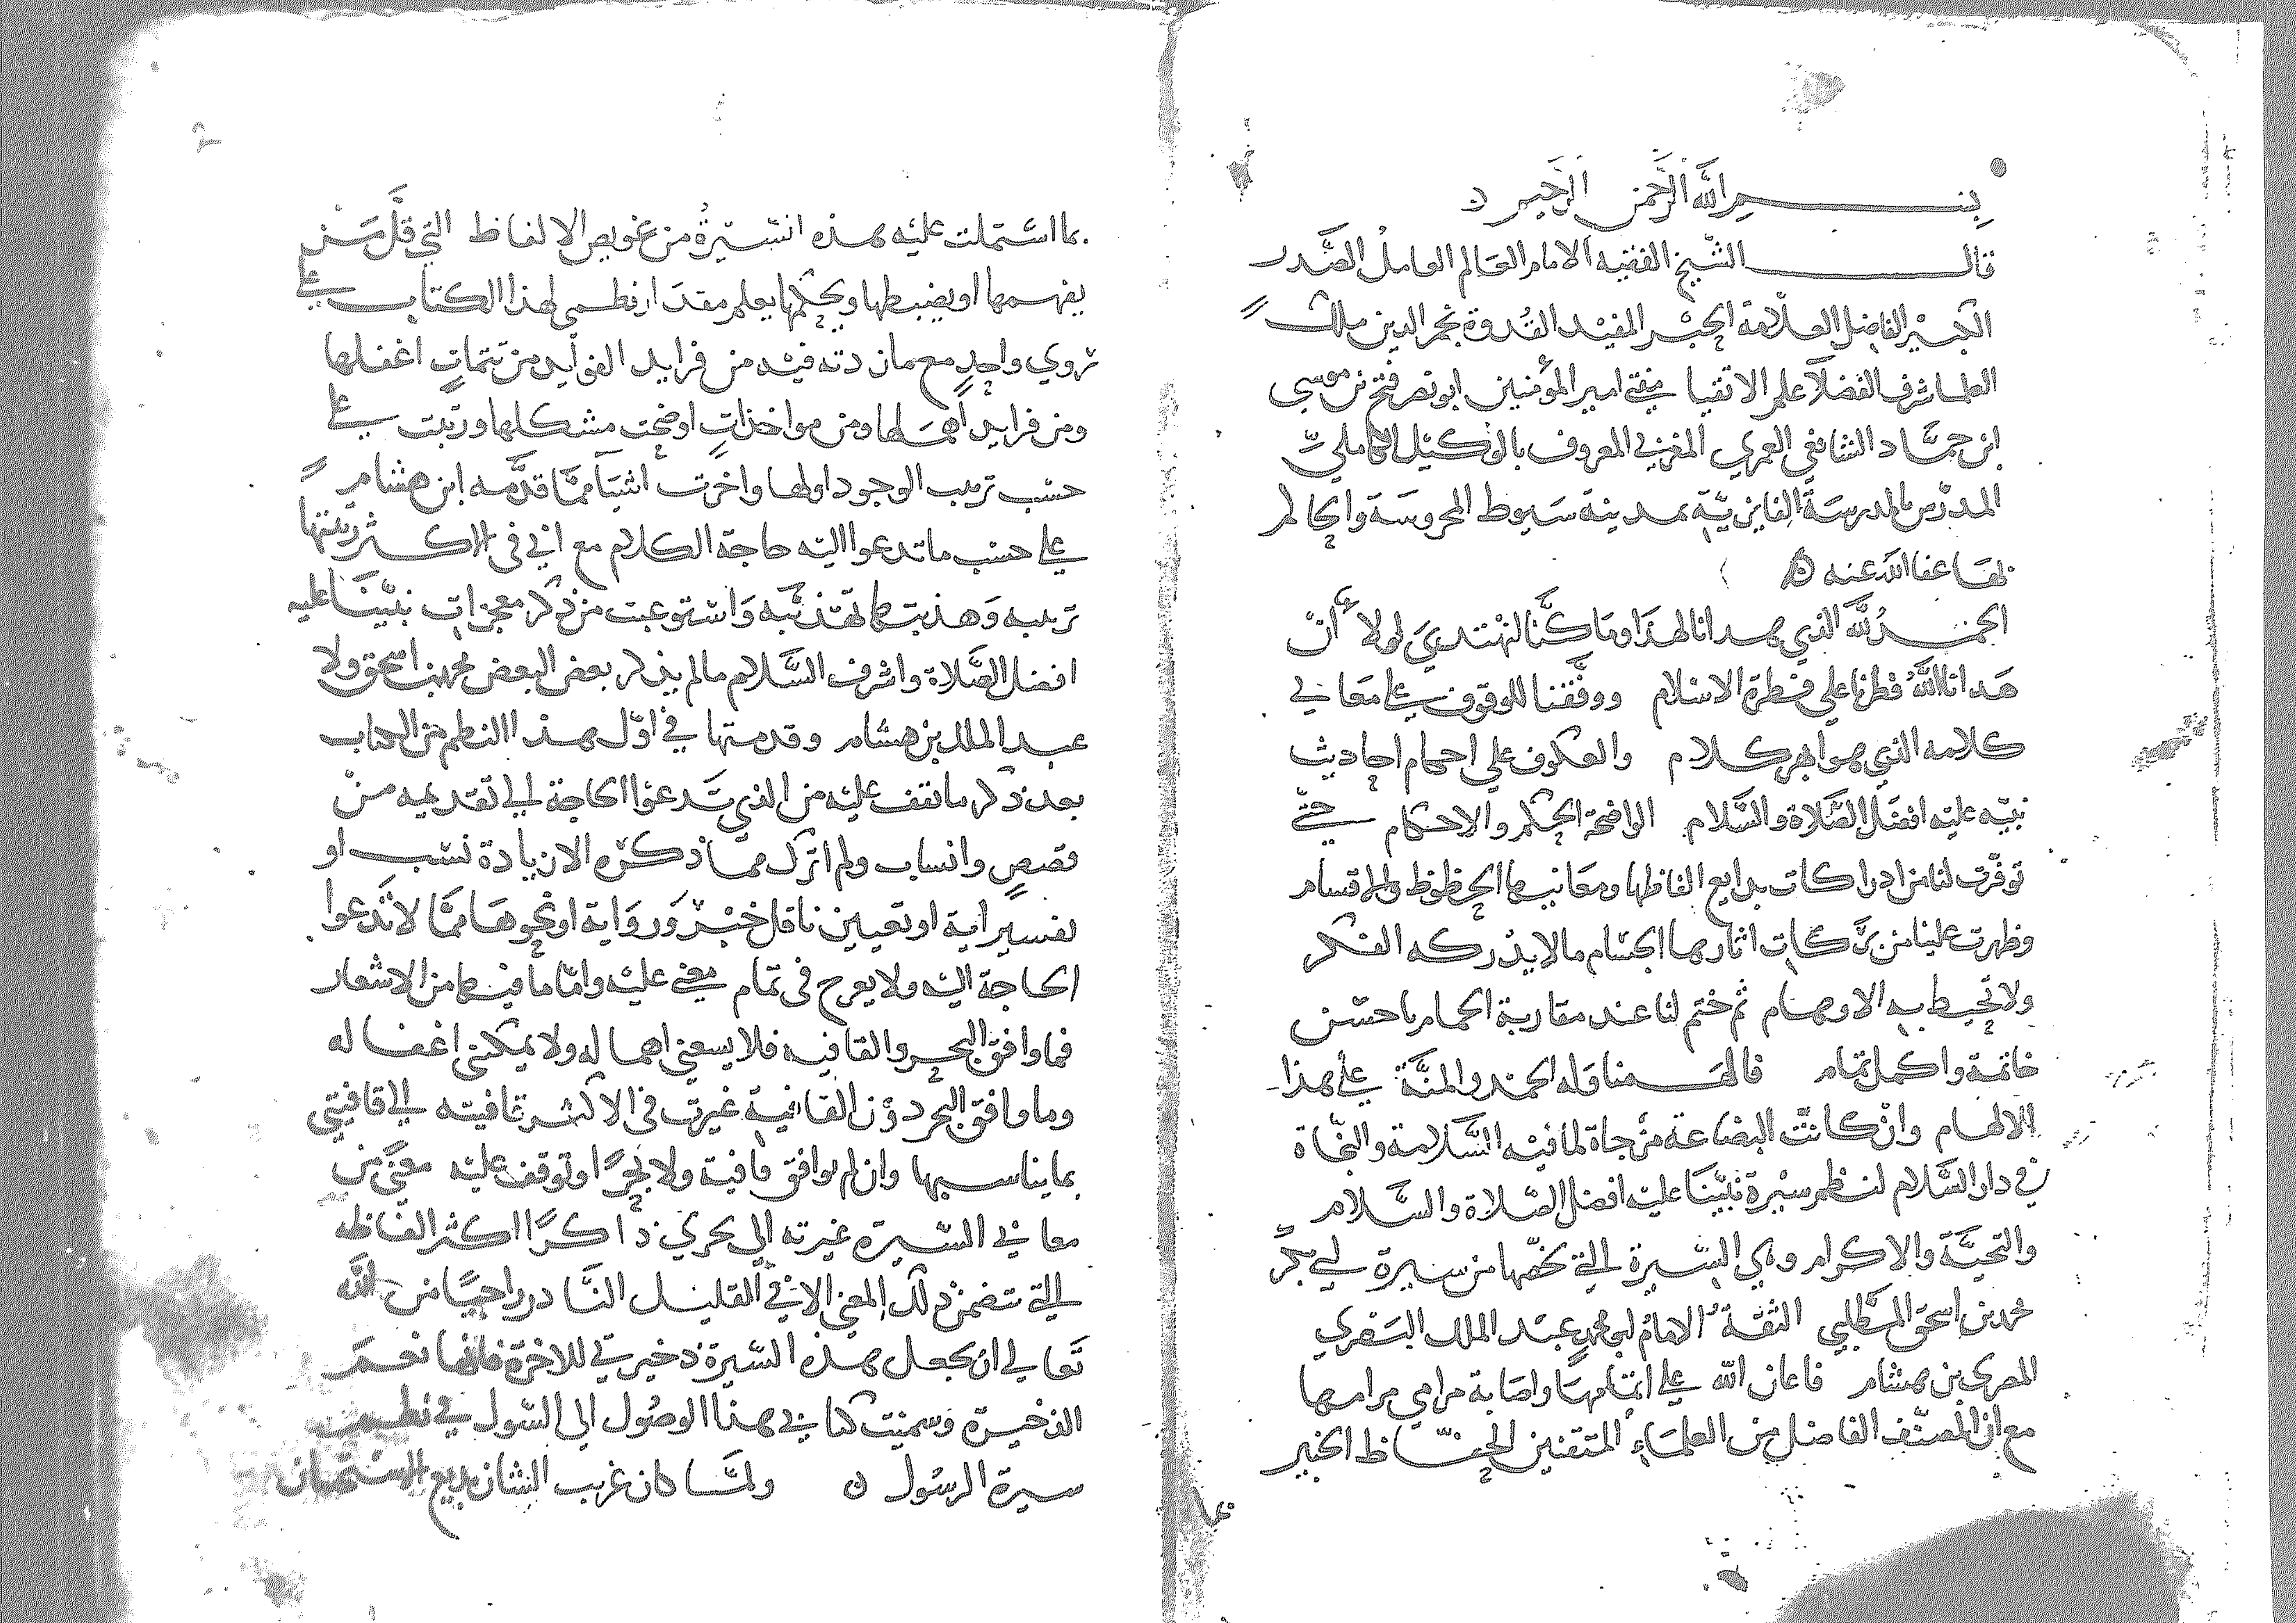 بسم الله الرحمن الرحيم
قال الشيخ الفقيه الامام العالم العامل الصَّدر
الكبير الفاضل العلّامة الحبْر المفيد القُدوة نجم الدين ملك
العلما شرف الفضلا علم الاتقيا مفتي امير المؤمنين ابو نصر فتح بن موسى
ابن حمَّاد الشافعي العمري المغربي المعروف بالوكيل الكاملي
المدرّس بالمدرسة الفايزيّة بمدينة سيوط المحروسة والحاكم
بها عفا الله عنه
الحمدُ لله الذي هدانا لهذا وما كنَّا لنهتديَ لولا أنْ
هَدانا اللهُ فطرنا على فطرة الاسلام ووفَّقنا للوقوف على معاني
كلامه الذي هو ابهر كلام والعكوف على احكام احاديث
نبيّه عليه افضل الصَّلاة والسَّلام الواضحة الحكم والاحكام حتّى
توفّرت لنا من ادراكات بدايع الفاظها ومعانيها الحظوظ والاقسام
وظهرت علينا من برَكات اثارها الجسام ما لا يدركه الفكر
ولا تحيط به الاوهام ثم ختم لنا عند مقاربة الحمام باحسن
خاتمة واكمل تمام فالهمنا وله الحمد والمنَّة على هذا
الالهام وانْ كانت البضاعة مزجاة لما فيه السَّلامة والنجّاة
في دار السَّلام لنظم سيرة نبيّنا عليه افضل الصّلاة والسَّلام
والتحيَّة والاكرام وهي السّيرة التي لخّصها من سيرة ابي بكر
محمد بن اسحق المطَّلبي الثقة الامام ابو محمد عبد الملك البصري
المصري بن هشام فاعان الله على اتمامها واصابة مرامي مرامها
مع ان المصنّف الفاضل من العلمَاءِ المتقنين الحفّاظ الخبير
بما
بما اشتملت عليه هذه السّيرةُ من عويص الالفاظ التي قلَّ مَنْ
يفهمها او يضبطها ويحكمها يعلم مقدار نظمي لهذا الكتاب على
روي واحدٍ مع ما زدته فيه من فرايد الفوايد من تتماتٍ اغفلها
ومن فرايد اهملها ومن مواخذات اوضحت مشكلها ورتبت على
حسب ترتيب الوجود اولها واخرت اشيآ ممّا قدّمه ابن هشام
على حسب ما تدعوا اليه حاجة الكلام مع اني في الاكثر رتبتها
ترتيبه وهذبت كما تهذيبه واستوعبت من ذكر معجزات نبيّنا عليه
افضل الصَّلاة واشرف السَّلام ما لم يذكر بعض البعض محمد بن اسحق ولا
عبد الملك بن هشام وقدمتها في اوّل هذا النظم من الكتاب
بعد ذكر ما تقف عليه من الذي تدعوا الحاجة الى تقديمه منْ
قصص وانساب ولم اترك مما ذكره الا زيادة نسب او
تفسير اية او تعيين ناقل خبْر ورواية او نحوها ممّا لا تدعوا
الحاجة اليه ولا يعرج في تمام معنى عليه وامّا ما فيها من الاشعار
فما وافق البحر والقافيه فلا يسعني اهماله ولا يمكنني اغفاله
وما وافق البحر دون القافية غيرت في الاكثر قافيته الى قافيتي
بما يناسبها وان لم يوافق قافية ولا بحرًا وتوقف عليه معنًى من
معاني السّيرة غيرته الى بحري ذاكرًا اكثر الفاظه
التي تتضمن ذلك المعنى الا في القليل النَّادر راجيًا من الله
تعالى ان يجعل هذه السّيرة ذخيرتي للاخرة فانّها نعم
الذخيرة وسميت كتابي هذا الوصُول الى السّول في نظم
سيرة الرسُول ولمَّا كان غريب الشان بديع الاستحسان